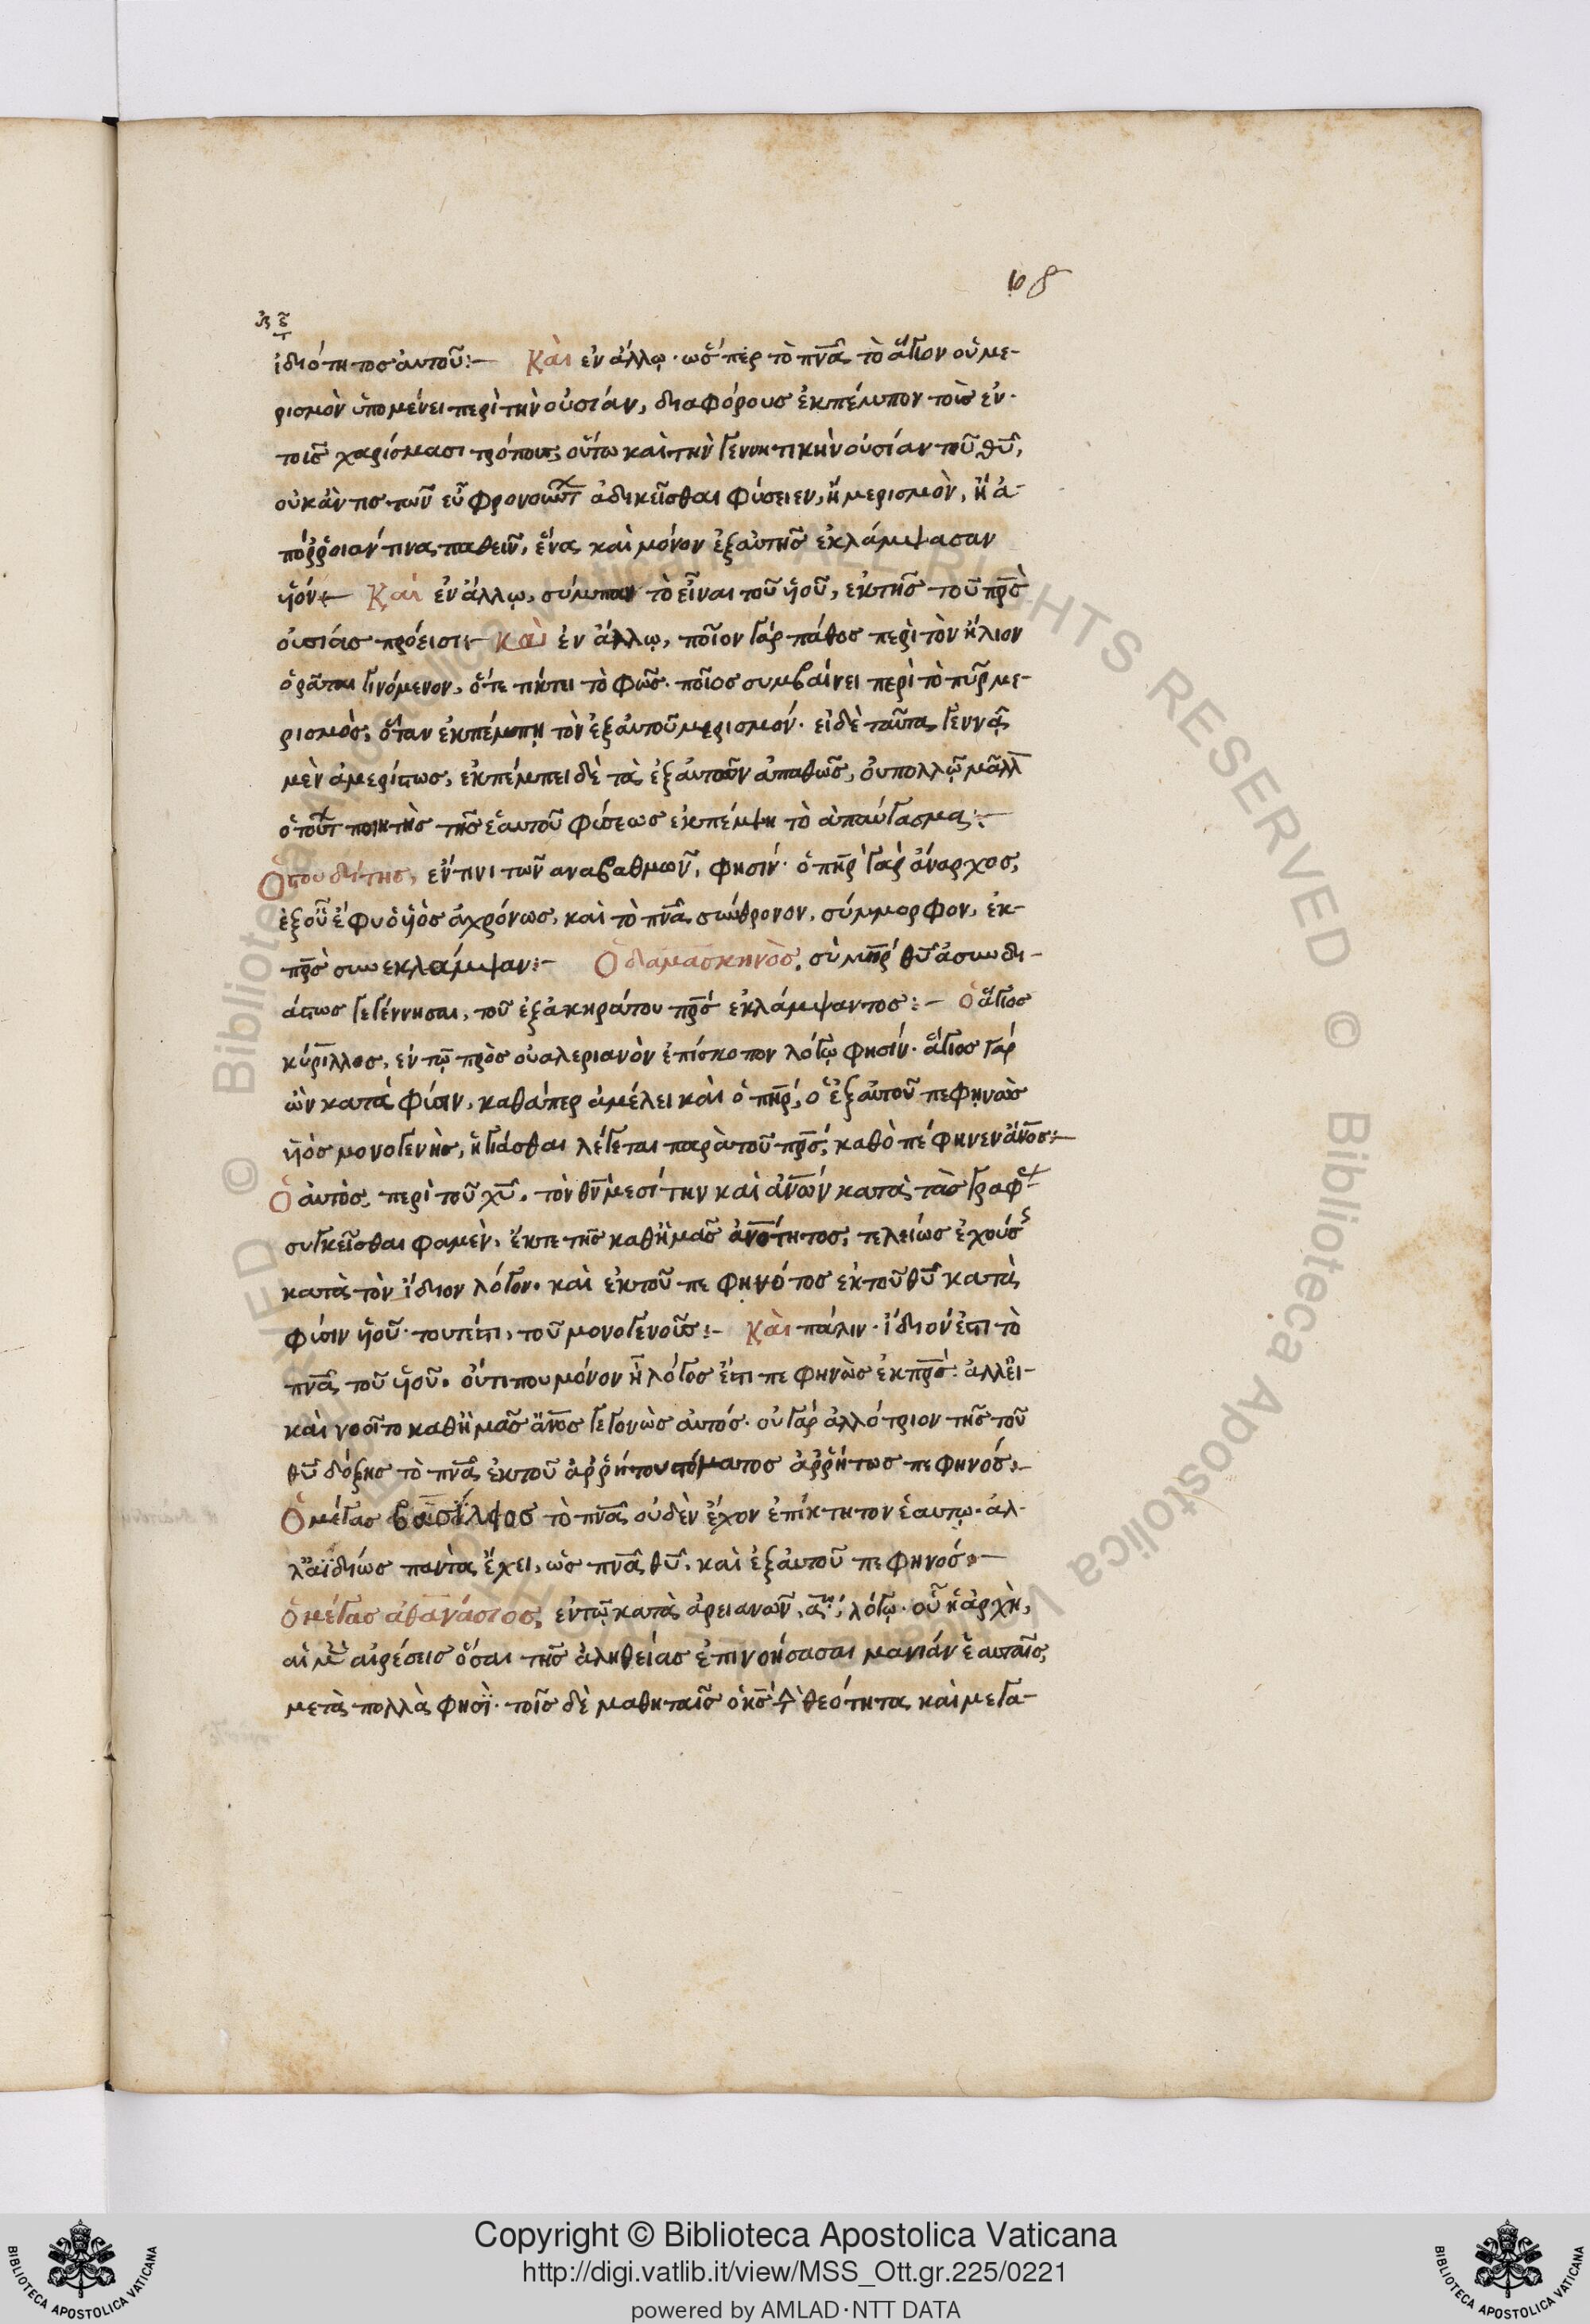 108
ἰδιότητος αὐτοῦ:— Καὶ ἐν ἄλλῳ· ὥσπερ τὸ πνᾶ τὸ ἅγιον οὐ με-
ρισμὸν ὑπομένει περὶ τὴν οὐσίαν, διαφόρους ἐκπέμπον τοῖς ἐν·
τοῖς χαρίσμασι τρόπους, οὕτω καὶ τὴν γεννητικὴν οὐσίαν τοῦ θῦ,
οὐκ ἄν τις τῶν εὖ φρονούντ ἀδικεῖσθαι φήσειεν, ἢ μερισμὸν, ἢ ἀ-
πόρροιάν τινα παθεῖν, ἕνα καὶ μόνον ἐξ αὐτῆς ἐκλάμψασαν
υἱόν:— Καὶ ἐν ἄλλῳ, σύμπαν τὸ εἶναι τοῦ υἱοῦ, ἐκ τῆς τοῦ πρς
οὐσίας πρόεισι:— καὶ ἐν ἄλλῳ, ποῖον γὰρ πάθος περὶ τὸν ἥλιον
ὁρᾶται γινόμενον, ὅτε τίκτει τὸ φῶς· ποῖος συμβαίνει περὶ τὸ πῦρ με-
ρισμὸς, ὅταν ἐκπέμπῃ τὸν ἐξ αὐτοῦ μερισμόν· εἰ δὲ ταῦτα γεννᾷ
μὲν ἀμερίστως, ἐκπέμπει δὲ τὰ ἐξ αὐτῶν ἀπαθῶς, οὐ πολλῷ μᾶλλ
ὁ τούτ ποιητὴς τῆς ἑαυτοῦ φύσεως ἐκπέμψῃ τὸ ἀπαύγασμα:—
Ὁ στουδίτης, ἔν τινι τῶν ἀναβαθμῶν, φησίν· ὁ πηρ γὰρ ἄναρχος,
ἐξ οὗ ἔφυ ὁ υἱὸς ἀχρόνως, καὶ τὸ πνᾶ σύνθρονον, σύμμορφον, ἐκ
πρς συνεκλάμψαν:— Ὁ δαμασκηνὸς, σὺ μηρ θῦ ἀσυνδυ-
άστως γεγέννησαι, τοῦ ἐξ ἀκηράτου πρς ἐκλάμψαντος:— ὁ ἅγιος
κύριλλος, ἐν τῷ πρὸς οὐαλεριανὸν ἐπίσκοπον λόγῳ φησίν· ἅγιος γὰρ
ὢν κατὰ φύσιν, καθάπερ ἀμέλει καὶ ὁ πηρ, ὁ ἐξ αὐτοῦ πεφηνὼς
υἱὸς μονογενὴς, ἡγιάσθαι λέγεται παρὰ τοῦ πρς, καθὸ πέφηνεν ἄνος:—
Ὁ αὐτὸς, περὶ τοῦ χῦ. τὸν θῦ μεσίτην καὶ ἀνων κατὰ τὰς γραφ
συγκεῖσθαι φαμὲν, ἔκ τε τῆς καθ' ἡμᾶς ἀνότητος, τελείως ἐχούσ
κατὰ τὸν ἴδιον λόγον· καὶ ἐκ τοῦ πεφηνότος ἐκ τοῦ θῦ κατὰ
φύσιν υἱοῦ· τουτέστι, τοῦ μονογενοῦς:— Καὶ πάλιν· ἴδιόν ἐστι τὸ
πνᾶ τοῦ υἱοῦ. οὔτι που μόνον ᾗ λόγος ἐστὶ πεφηνὼς ἐκ πρς· ἀλλ' εἰ
καὶ νοοῖτο καθ' ἡμᾶς ἄνος γεγονὼς αὐτός· οὐ γὰρ ἀλλότριον τῆς τοῦ
θῦ δόξης τὸ πνᾶ ἐκ τοῦ ἀρρήτου στόματος ἀρρήτως πεφηνός:—
Ὁ μέγας βασίλειος τὸ πνᾶ οὐδὲν ἔχον ἐπίκτητον ἑαυτῷ· ἀλ-
λ' ἀϊδίως πάντα ἔχει, ὡς πνᾶ θῦ, καὶ ἐξ αὐτοῦ πεφηνός:—
ὁ μέγας ἀθανάσιος, ἐν τῷ κατὰ ἀρειανῶν, α, λόγῳ· οὗ ἡ ἀρχὴ,
αἱ μὲν αἱρέσεις ὅσαι τῆς ἀληθείας ἐπινοήσασαι μανίαν ἑαυταῖς,
μετὰ πολλὰ φησί· τοῖς δὲ μαθηταῖς ὁ κς τὴν θεότητα καὶ μεγα-
Copyright © Biblioteca Apostolica Vaticana
http://digi.vatlib.it/view/MSS_Ott.gr.225/0221
powered by AMLAD·NTT DATA
BIBLIOTECA APOSTOLICA VATICANA
BIBLIOTECA APOSTOLICA VATICANA